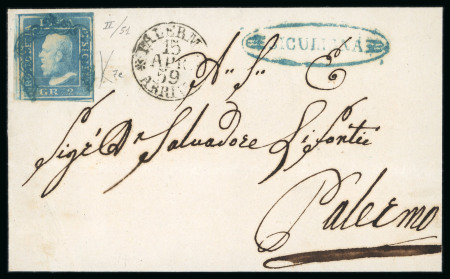 GR. 2
II/51
7c
PALERMO
15
APR
59
ARRIVO
SICULIANA
A S. E.
Sig.r D.n Salvadore
Palermo